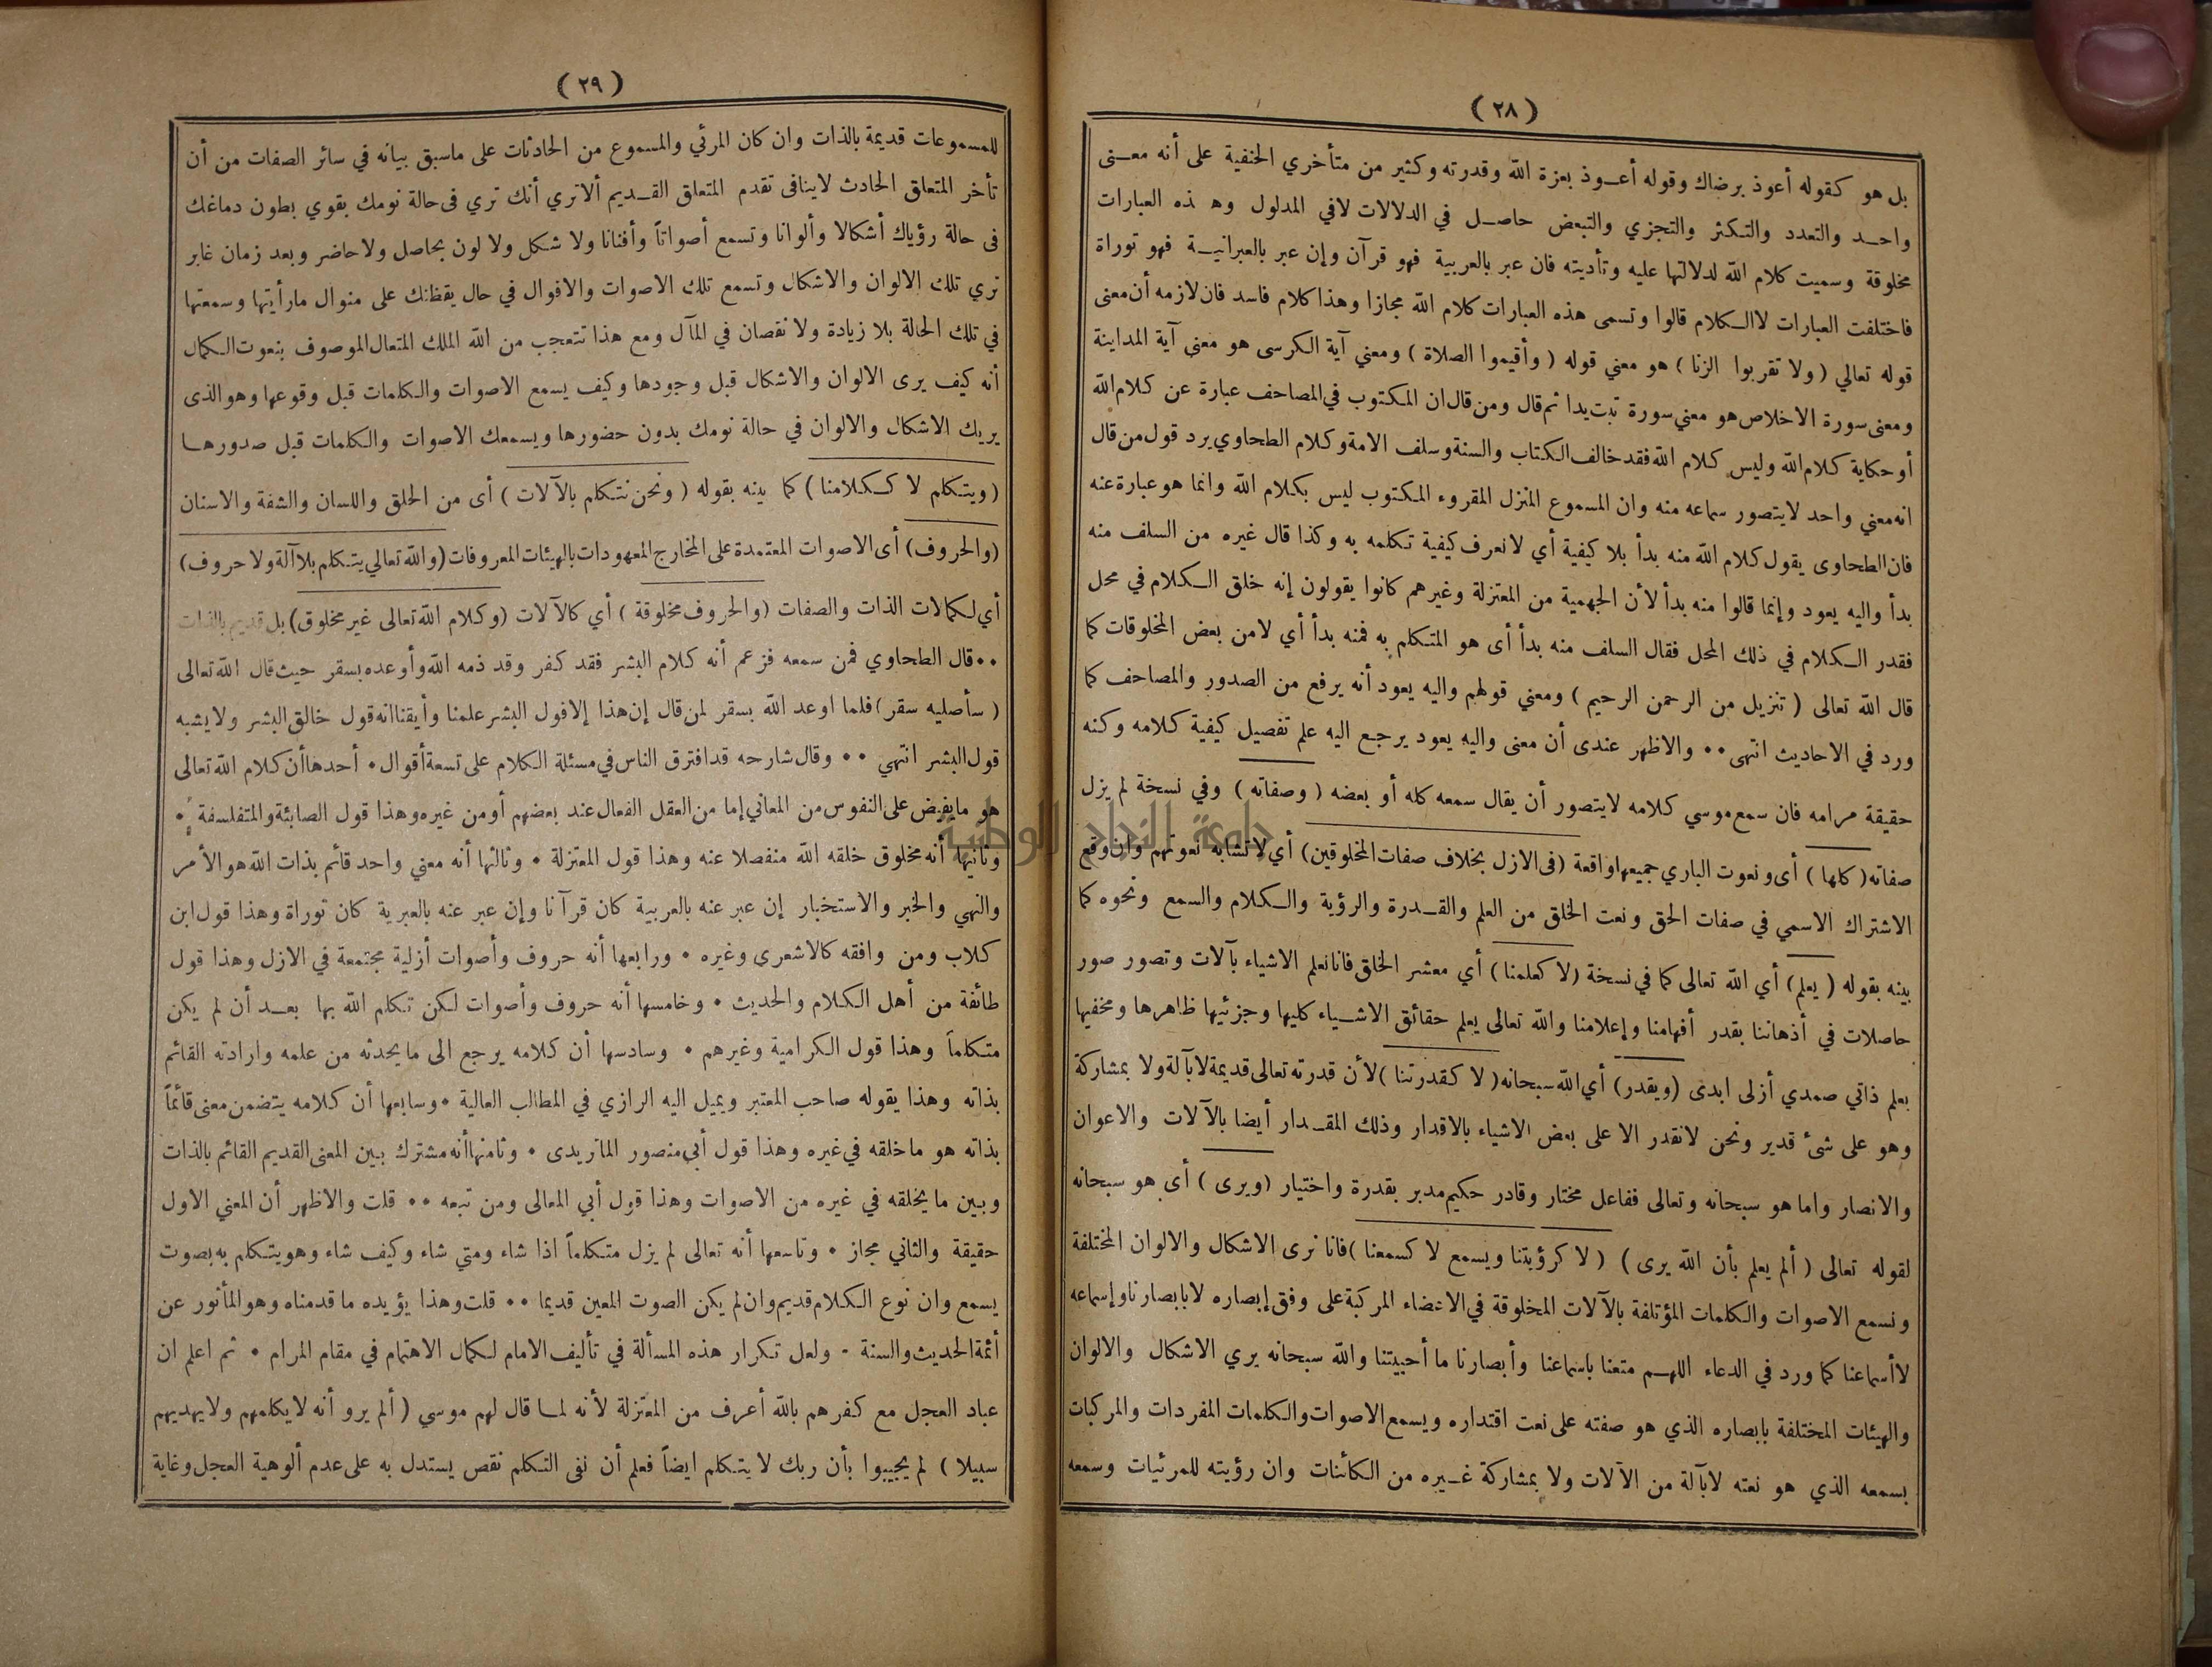 ( ٢٨ )
بل هو كقوله أعوذ برضاك وقوله أعوذ بعزة الله وقدرته وكثير من متأخري الحنفية على أنه معنى
واحد والتعدد والتكثر والتجزي والتبعض حاصل في الدلالات لافي المدلول وهذه العبارات
مخلوقة وسميت كلام الله لدلالتها عليه وتأديته فان عبر بالعربية فهو قرآن وإن عبر بالعبرانية فهو توراة
فاختلفت العبارات لاالكلام قالوا وتسمى هذه العبارات كلام الله مجازا وهذا كلام فاسد فان لازمه أن معنى
قوله تعالي ( ولا تقربوا الزنا ) هو معني قوله ( وأقيموا الصلاة ) ومعني آية الكرسى هو معني آية المداينة
ومعنى سورة الاخلاص هو معني سورة تبت يدا ثم قال ومن قال ان المكتوب في المصاحف عبارة عن كلام الله
أو حكاية كلام الله وليس كلام الله فقد خالف الكتاب والسنة وسلف الامة وكلام الطحاوي يرد قول من قال
انه معني واحد لايتصور سماعه منه وان المسموع المنزل المقروء المكتوب ليس بكلام الله وانما هو عبارة عنه
فان الطحاوى يقول كلام الله منه بدأ بلا كيفية أي لا نعرف كيفية تكلمه به وكذا قال غيره من السلف منه
بدأ واليه يعود وإنما قالوا منه بدأ لأن الجهمية من المعتزلة وغيرهم كانوا يقولون إنه خلق الكلام في محل
فقدر الكلام في ذلك المحل فقال السلف منه بدأ أى هو المتكلم به فمنه بدأ أي لامن بعض المخلوقات كما
قال الله تعالى ( تنزيل من الرحمن الرحيم ) ومعني قولهم واليه يعود أنه يرفع من الصدور والمصاحف كما
ورد في الاحاديث انتهى ·· والاظهر عندى أن معنى واليه يعود يرجع اليه علم تفصيل كيفية كلامه وكنه
حقيقة مرامه فان سمع موسي كلامه لايتصور أن يقال سمعه كله أو بعضه ( وصفاته ) وفي نسخة لم يزل
صفاته ( كلها ) أى ونعوت الباري جميعها واقعة ( فى الازل بخلاف صفات المخلوقين ) أي لاتشابه نعوتهم وان وقع
الاشتراك الاسمي في صفات الحق ونعت الخلق من العلم والقدرة والرؤية والكلام والسمع ونحوه كما
بينه بقوله ( يعلم ) أي الله تعالى كما في نسخة ( لا كعلمنا ) أي معشر الخلق فانا نعلم الاشياء بآلات وتصور صور
حاصلات في أذهاننا بقدر أفهامنا وإعلامنا والله تعالى يعلم حقائق الاشياء كليها وجزئيها ظاهرها ومخفيها
بعلم ذاتي صمدي أزلى ابدى ( ويقدر ) أي الله سبحانه ( لا كقدرتنا ) لأن قدرته تعالى قديمة لابآلة ولا بمشاركة
وهو على شئ قدير ونحن لانقدر الا على بعض الاشياء بالاقدار وذلك المقدار أيضا بالآلات والاعوان
والانصار واما هو سبحانه وتعالى ففاعل مختار وقادر حكيم مدبر بقدرة واختيار ( ويرى ) أى هو سبحانه
لقوله تعالى ( ألم يعلم بأن الله يرى ) ( لا كرؤيتنا ويسمع لا كسمعنا ) فانا نرى الاشكال والالوان المختلفة
ونسمع الاصوات والكلمات المؤتلفة بالآلات المخلوقة في الاعضاء المركبة على وفق إبصاره لابابصارنا وإسماعه
لاأسماعنا كما ورد في الدعاء اللهم متعنا باسماعنا وأبصارنا ما أحييتنا والله سبحانه يري الاشكال والالوان
والهيئات المختلفة بابصاره الذي هو صفته على نعت اقتداره ويسمع الاصوات والكلمات المفردات والمركبات
بسمعه الذي هو نعته لابآلة من الآلات ولا بمشاركة غيره من الكائنات وان رؤيته للمرئيات وسمعه
( ٢٩ )
للمسموعات قديمة بالذات وان كان المرئي والمسموع من الحادثات على ماسبق بيانه في سائر الصفات من أن
تأخر المتعلق الحادث لاينافى تقدم المتعلق القديم ألاتري أنك تري فى حالة نومك بقوي بطون دماغك
فى حالة رؤياك أشكالا وألوانا وتسمع أصواتاً وأفنانا ولا شكل ولا لون بحاصل ولا حاضر وبعد زمان غابر
تري تلك الالوان والاشكال وتسمع تلك الاصوات والاقوال في حال يقظتك على منوال مارأيتها وسمعتها
في تلك الحالة بلا زيادة ولا نقصان في المآل ومع هذا تتعجب من الله الملك المتعال الموصوف بنعوت الكمال
أنه كيف يرى الالوان والاشكال قبل وجودها وكيف يسمع الاصوات والكلمات قبل وقوعها وهو الذى
يريك الاشكال والالوان في حالة نومك بدون حضورها ويسمعك الاصوات والكلمات قبل صدورها
( ويتكلم لا ككلامنا ) كما بينه بقوله ( ونحن نتكلم بالآلات ) أى من الحلق واللسان والشفة والاسنان
( والحروف ) أى الاصوات المعتمدة على المخارج المعهودات بالهيئات المعروفات ( والله تعالي يتكلم بلا آلة ولا حروف )
أي لكمالات الذات والصفات ( والحروف مخلوقة ) أي كالآلات ( وكلام الله تعالى غير مخلوق ) بل قديم بالذات
·· قال الطحاوي فمن سمعه فزعم أنه كلام البشر فقد كفر وقد ذمه الله وأوعده بسقر حيث قال الله تعالى
( سأصليه سقر ) فلما اوعد الله بسقر لمن قال إن هذا إلا قول البشر علمنا وأيقنا انه قول خالق البشر ولا يشبه
قول البشر انتهي ·· وقال شارحه قد افترق الناس في مسئلة الكلام على تسعة أقوال · أحدها أن كلام الله تعالى
هو مايفيض على النفوس من المعاني إما من العقل الفعال عند بعضهم أو من غيره وهذا قول الصابئة والمتفلسفة ·
وثانيها أنه مخلوق خلقه الله منفصلا عنه وهذا قول المعتزلة · وثالثها أنه معني واحد قائم بذات الله هو الأمر
والنهي والخبر والاستخبار إن عبر عنه بالعربية كان قرآنا وإن عبر عنه بالعبرية كان توراة وهذا قول ابن
كلاب ومن وافقه كالاشعرى وغيره · ورابعها أنه حروف وأصوات أزلية مجتمعة في الازل وهذا قول
طائفة من أهل الكلام والحديث · وخامسها أنه حروف وأصوات لكن تكلم الله بها بعد أن لم يكن
متكلماً وهذا قول الكرامية وغيرهم · وسادسها أن كلامه يرجع الى مايحدثه من علمه وارادته القائم
بذاته وهذا يقوله صاحب المعتبر ويميل اليه الرازي في المطالب العالية · وسابعها أن كلامه يتضمن معنى قائماً
بذاته هو ماخلقه في غيره وهذا قول أبي منصور الماتريدى · وثامنها أنه مشترك بين المعنى القديم القائم بالذات
وبين مايخلقه في غيره من الاصوات وهذا قول أبي المعالى ومن تبعه ·· قلت والاظهر أن المعني الاول
حقيقة والثاني مجاز · وتاسعها أنه تعالى لم يزل متكلماً اذا شاء ومتي شاء وكيف شاء وهو يتكلم به بصوت
يسمع وان نوع الكلام قديم وان لم يكن الصوت المعين قديما ·· قلت وهذا يؤيده ما قدمناه وهو المأثور عن
أئمة الحديث والسنة - ولعل تكرار هذه المسألة في تأليف الامام لكمال الاهتمام في مقام المرام · ثم اعلم ان
عباد العجل مع كفرهم بالله أعرف من المعتزلة لأنه لما قال لهم موسي ( ألم يرو أنه لايكلمهم ولايهديهم
سبيلا ) لم يجيبوا بأن ربك لا يتكلم ايضاً فعلم أن نفى التكلم نقص يستدل به على عدم ألوهية العجل وغاية
جامعة النجاح الوطنية